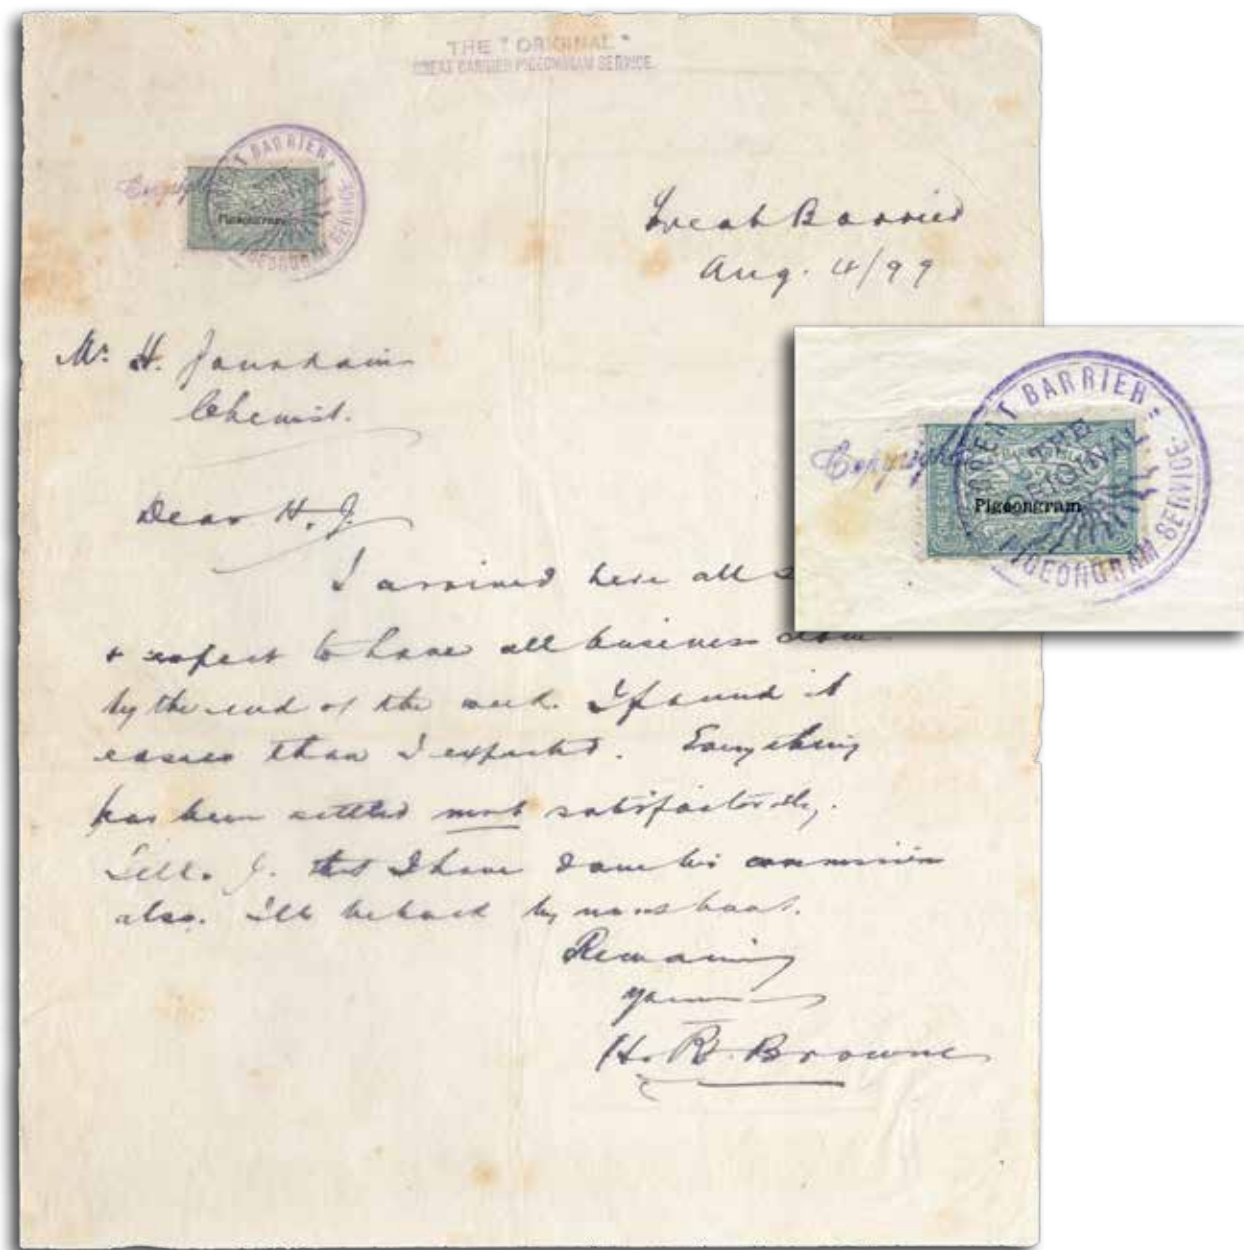 THE "ORIGINAL"
GREAT BARRIER PIGEONGRAM SERVICE.
Copyright
GREAT BARRIER
PIGEONGRAM SERVICE
Pigeongram
Great Barrier
Aug. 4/99
Mr H.
Chemist.
Dear H. J.
I arrived here all
& expect to have all business done
by the end of the week. I found it
easier than I expected. Everything
has been settled most satisfactorily.
Tell J. that I have done his commission
also. I'll be back by boat.
Remaining
Yours
H. R. Browne
Copyright
GREAT BARRIER
THE
ORIGINAL
Pigeongram
PIGEONGRAM SERVICE